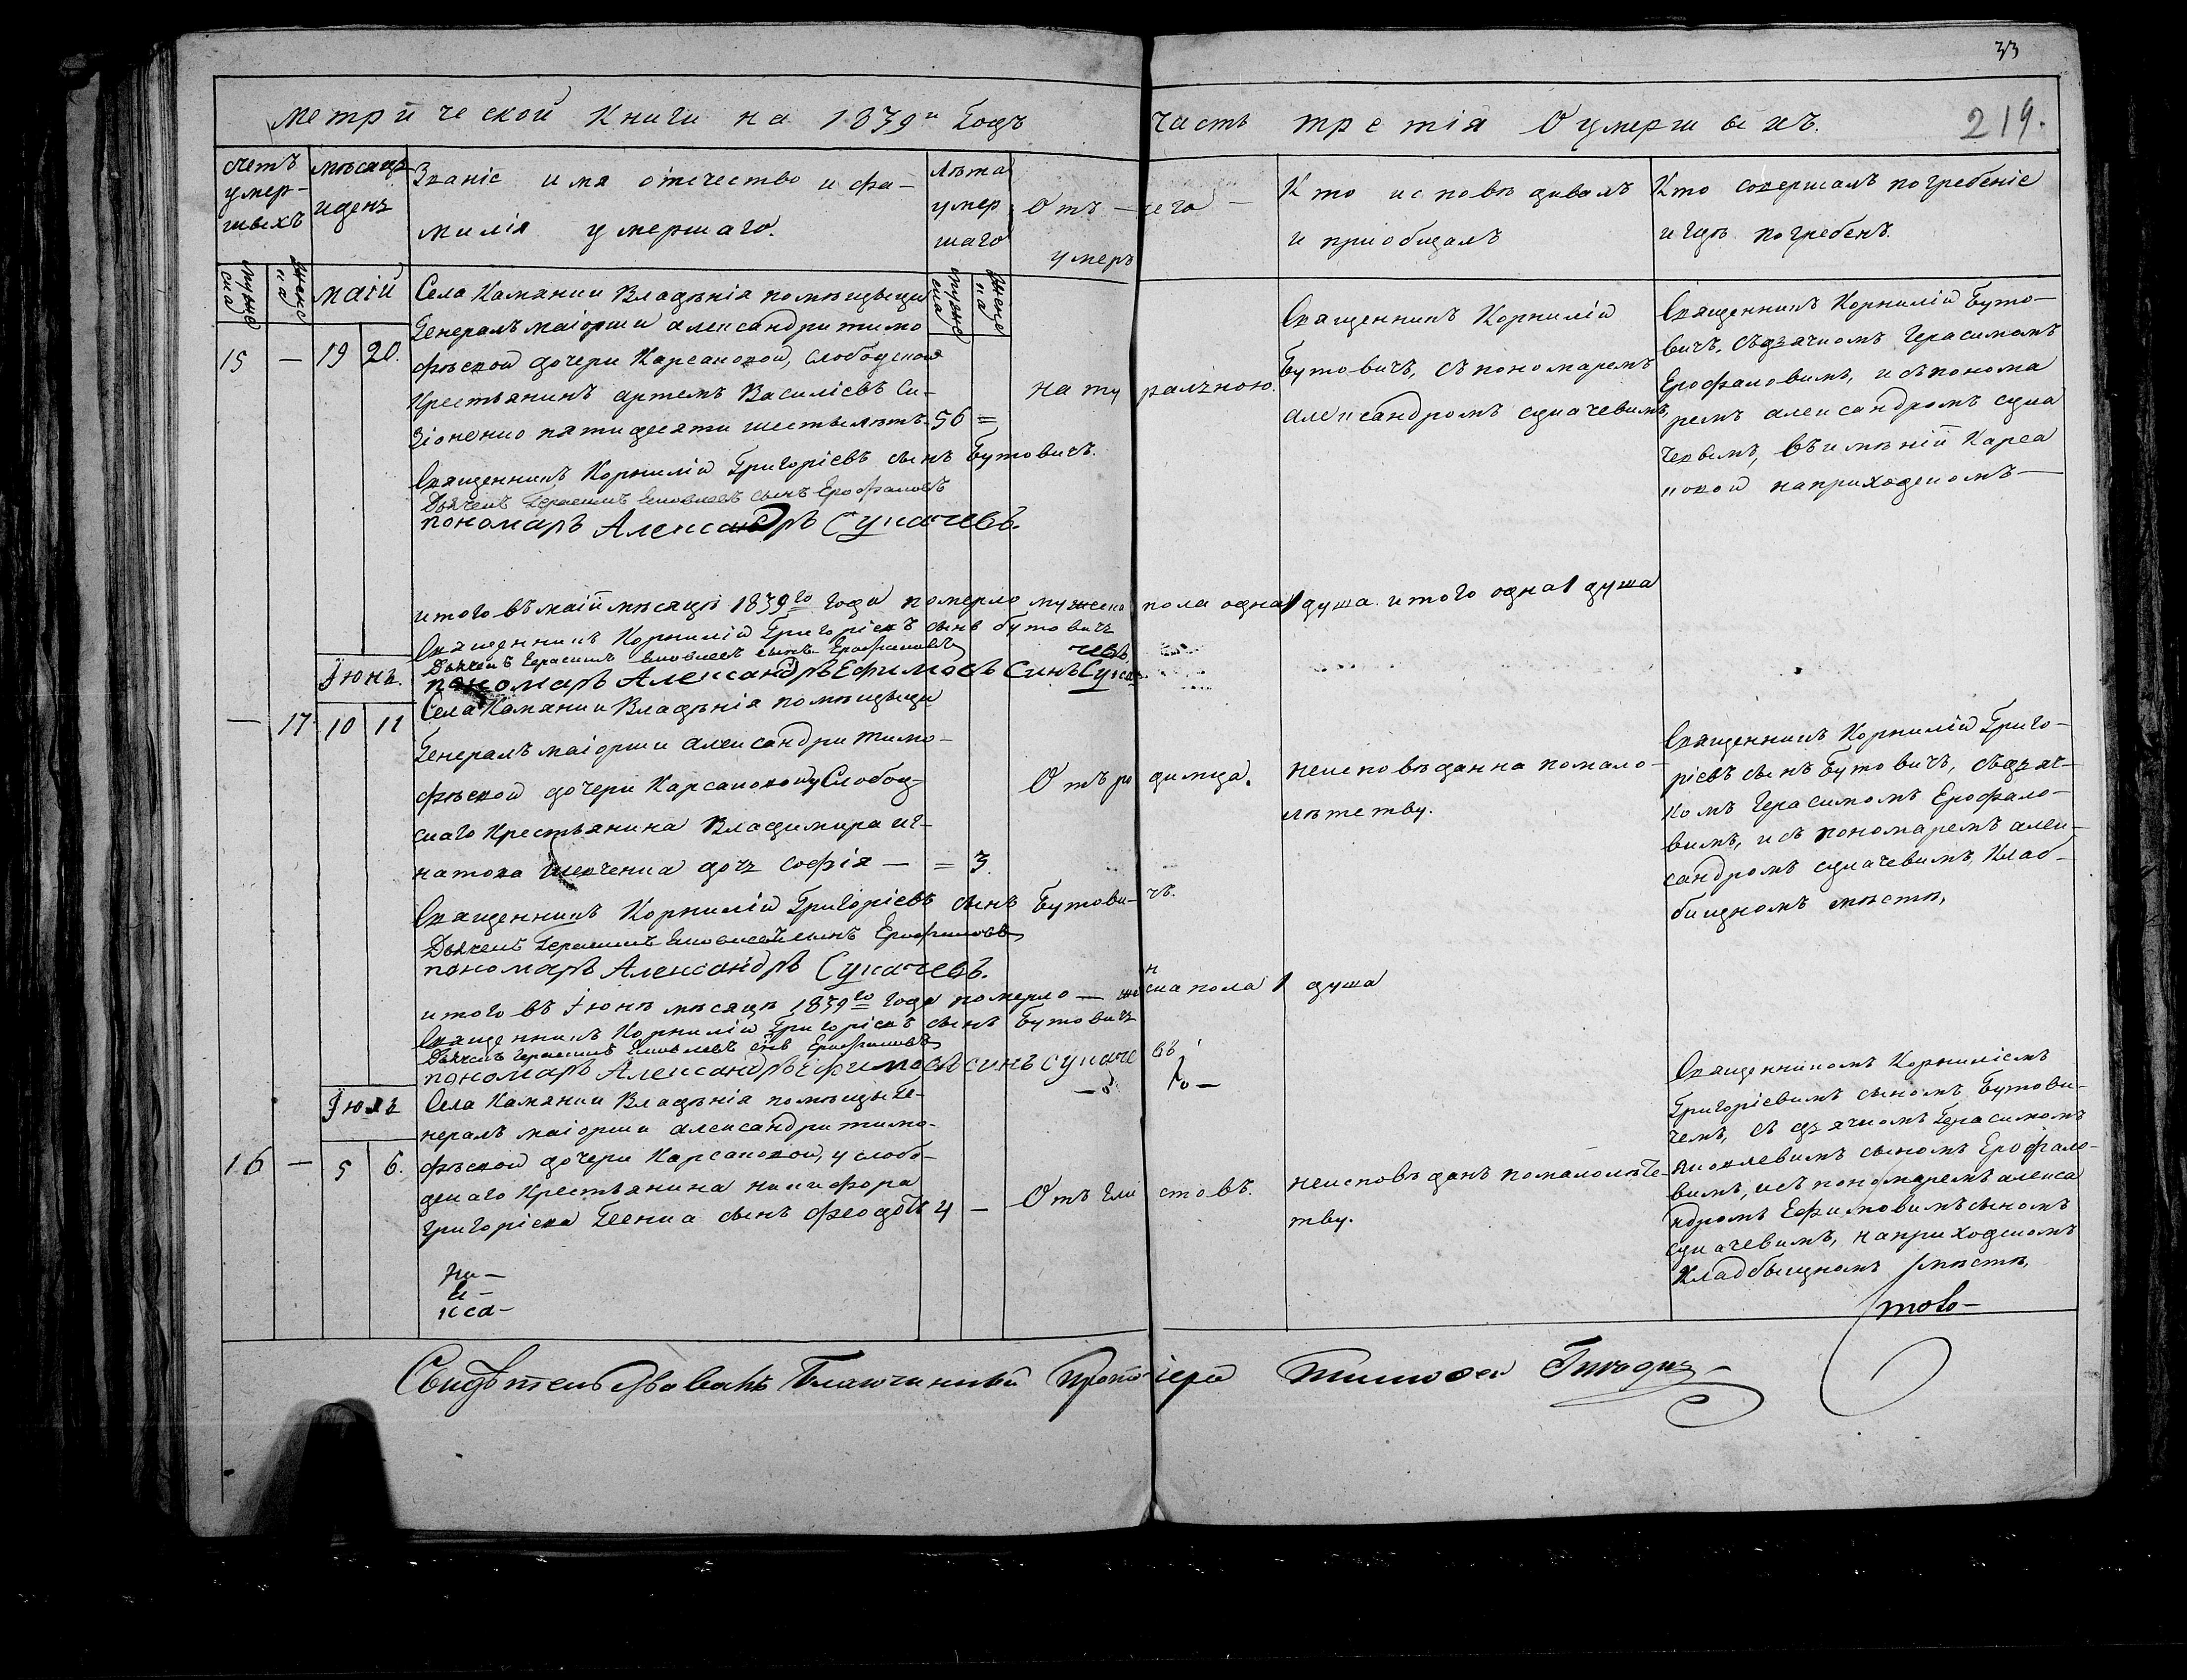 33
219.
Метрической Книги на 1839й Годъ часть третія О умершыхъ.
счетъ умер-шихъ
мѣсяцъ и день
Званіе имя отечество и фа-
милія умершаго.
Лѣта умер шаго
Отъ чего
умеръ
Кто исповѣдивалъ
и пріобщалъ
Кто совершалъ погребеніе
и гдѣ погребенъ.
муже ска
женс на
маій
муже ска
жене на
15 — 19 20.
Села Камянки Владѣнія помѣщыци
Генералъ маіорши александри тимо
фѣевой дочери Карсаковой, слободской
Крестьянинъ артемъ Василіевъ Си-
зіоненко пятидесяти шестьлѣтъ. 56 =
натуралъною.
Священникъ Корнилій
Бутовичъ, съ пономаремъ
александромъ сукачевимъ,
Священникъ Корнилій Буто-
вичъ, съ дячкомъ Герасимомъ
Ерофаловимъ, и съ понома
ремъ александромъ сука
чевымъ, въ имѣній Карса
ковой на приходскомъ —
Священникъ Корнилій Григоріевъ сынъ Бутовичъ.
Дьячекъ Герасимъ Яковлевъ сынъ Ерофаловъ
пономарь Александръ Сукачевъ.
итого въ маій мѣсяцѣ 1839го года померло мужеска пола одна 1 душа. итого одна 1 душа
Священникъ Корнилій Григоріевъ сынъ бутовичъ
Дьячекъ Герасимъ Яковлевъ сынъ Ерофаловъ
пономарь Александръ Ефимовъ синъ Сука
чевъ.
Іюнь.
— 17 10 11
Села Камянки Владѣнія помѣщыци
Генералъ маіорши александри тимо-
фѣевой дочери Карсаковой у Слобод-
скаго Крестьянина Владимира иг-
натова шевченка дочь софія — = 3.
Отъ родимца.
неисповѣданна по мало-
лѣтству.
Священникъ Корнилій Григо-
ріевъ сынъ Бутовичъ, съ дяч-
комъ Герасимомъ Ерофало-
вимъ, и съ пономаремъ алек-
сандромъ сукачевимъ, Клад-
бищномъ мѣстѣ,
Священникъ Корнилій Григоріевъ сынъ Бутови-чъ.
Дьячекъ Герасимъ Яковлевъ сынъ Ерофаловъ
пономарь Александръ Сукачевъ.
итого въ Іюнѣ мѣсяцѣ 1839го года померло — женска пола 1 душа
Священникъ Корнилій Григоріевъ сынъ Бутовичъ
Дьячекъ Герасимъ Яковлевъ сынъ Ерофаловъ
пономарь Александръ Ефимовъ синъ сукачевъ
Іюль
16 — 5 6.
Села Камянки Владѣнія помѣщыци Ге-
нералъ маіорши александри тимо-
фѣевой дочери Карсаковой, у слобо-
дскаго Крестьянина никифора
григоріева Геенка сынъ феодотъ 4 —
Отъ глистовъ.
неисповѣданъ по малолѣтс-
тву.
Священникомъ Корниліемъ
Григоріевимъ сыномъ Бутови-
чемъ, съ дячкомъ Герасимомъ
Яковлевимъ сыномъ Ерофало-
вимъ, и съ пономаремъ алекса
ндромъ Ефимовимъ сыномъ
сукачевимъ, на приходскомъ
Кладбыщномъ мѣстѣ,
Свидѣтельствовалъ Благочинный Протоіерей